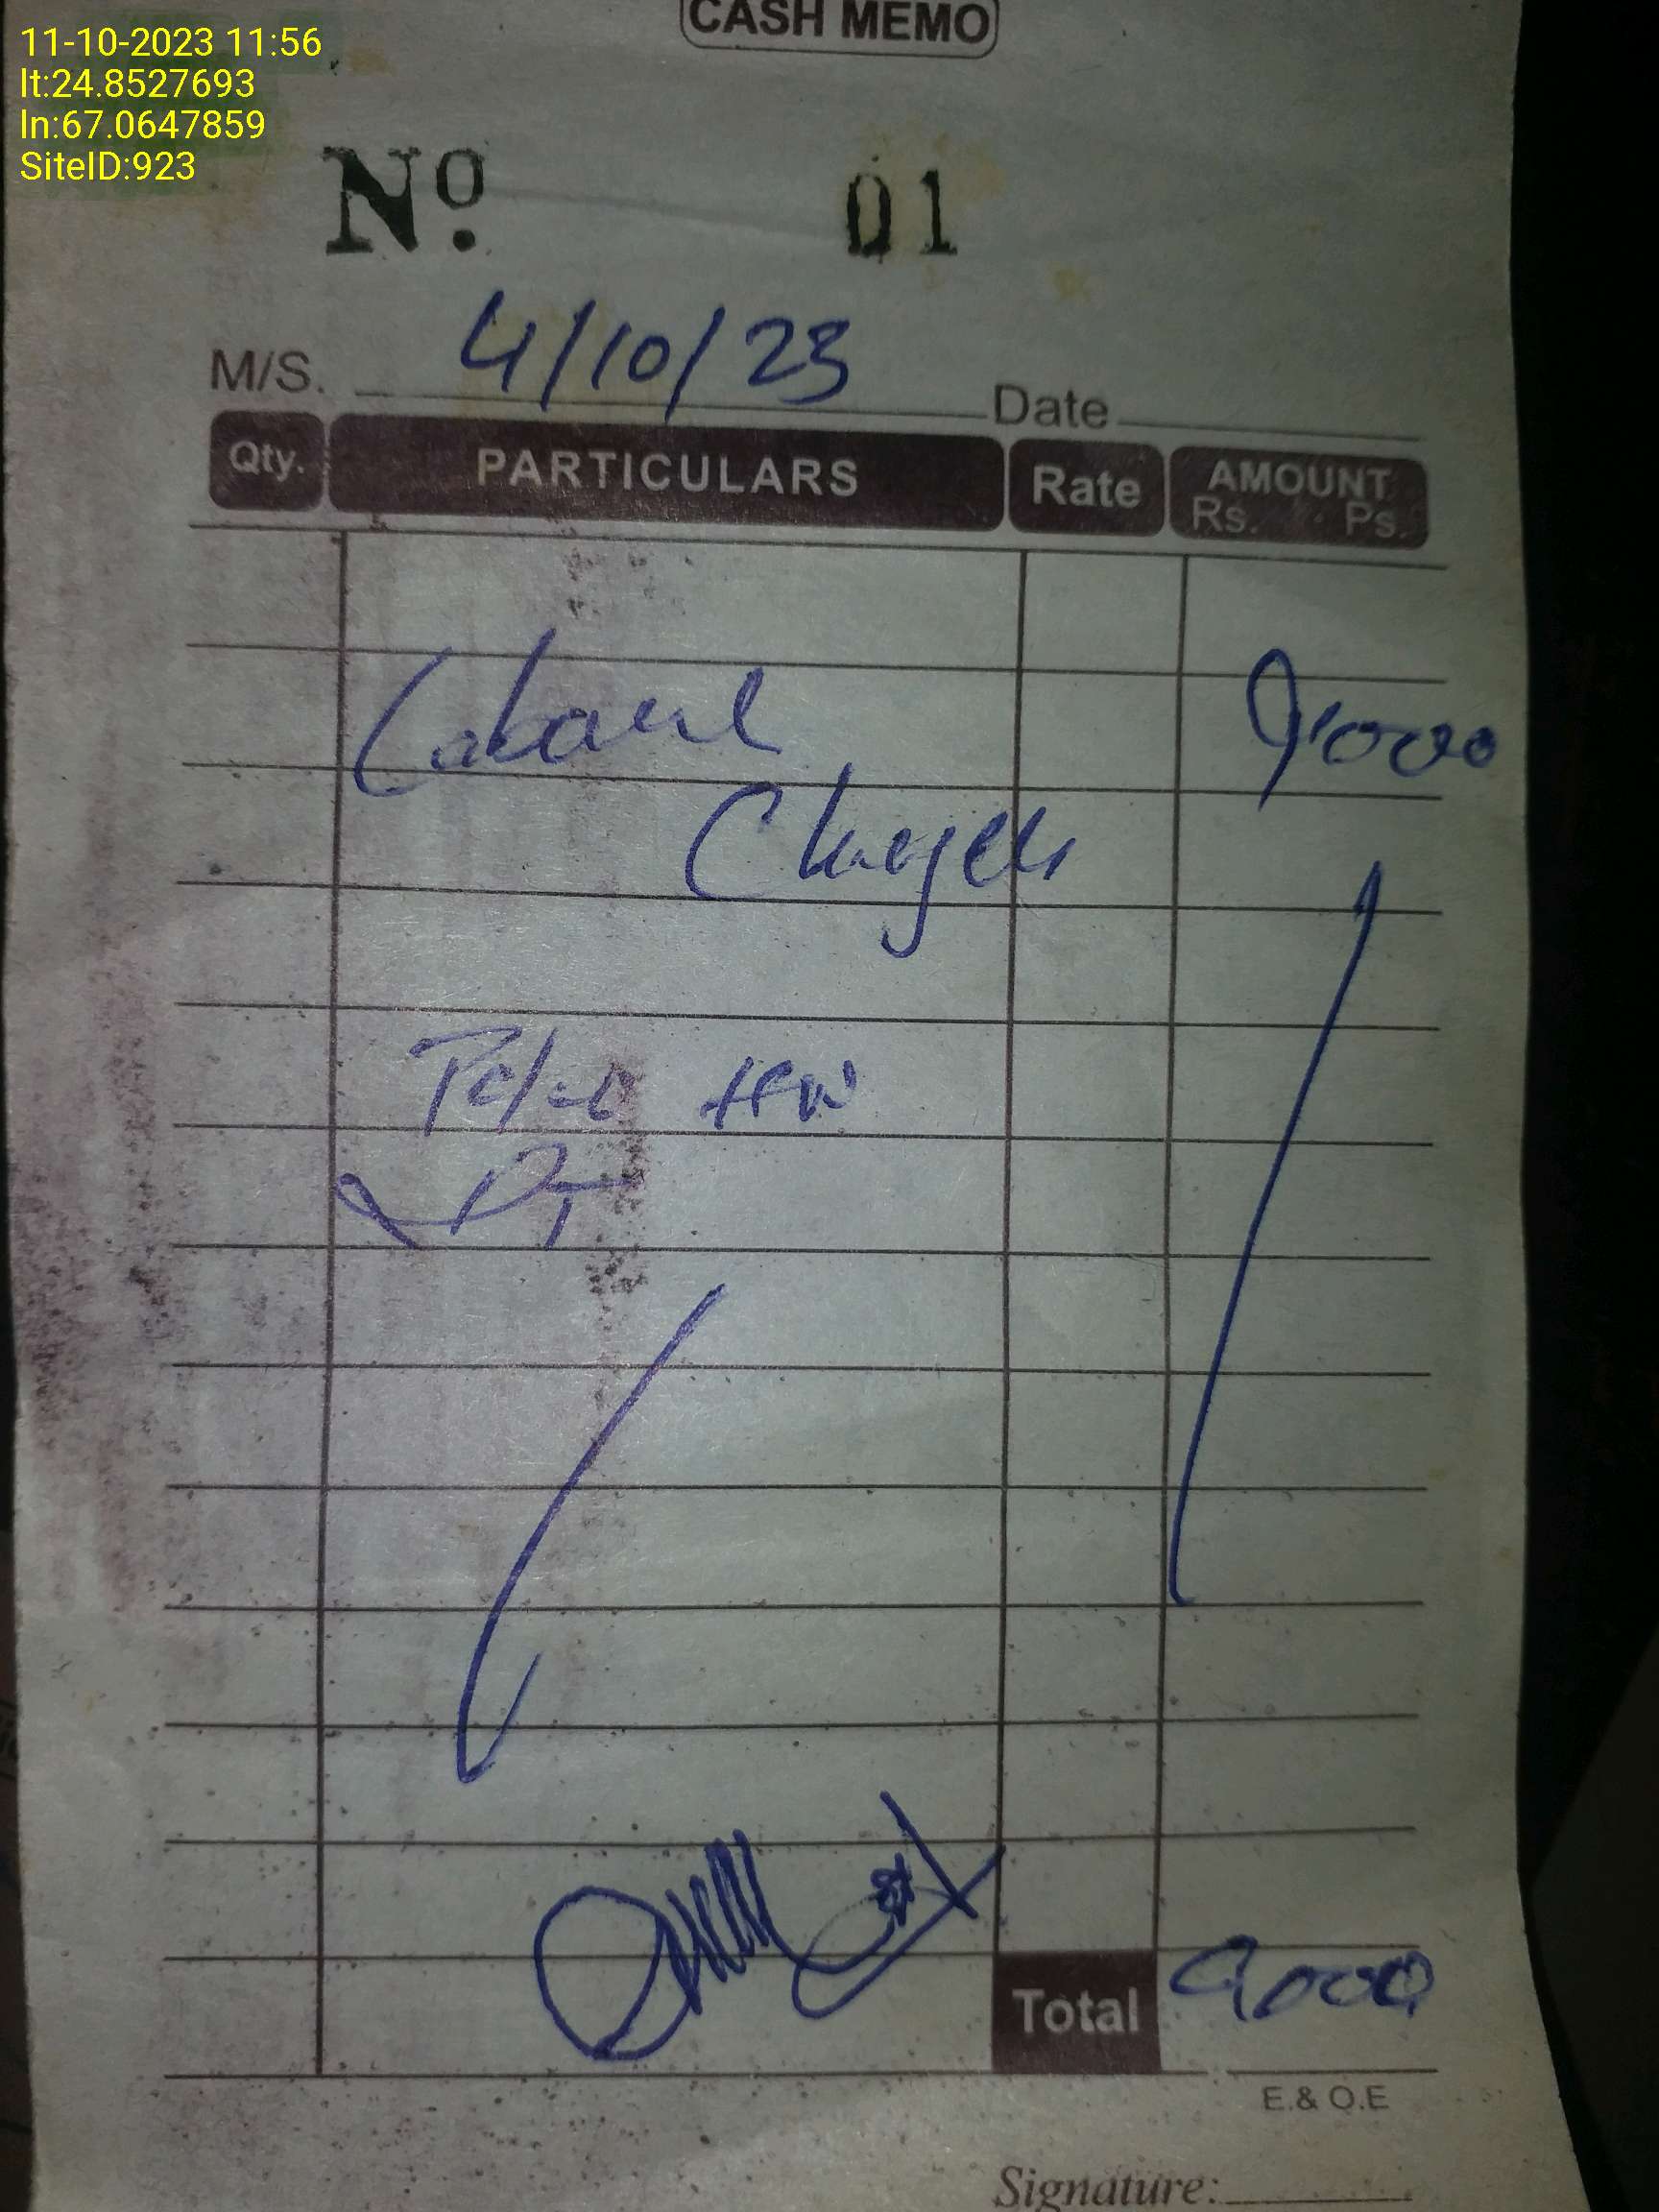 11-10-2023 11:56
lt:24.8527693
ln:67.0647859
SiteID:923
CASH MEMO
No. 01
M/S. 4/10/23 Date
Qty. PARTICULARS Rate AMOUNT
Rs. Ps.
9000
Charges
Total 9000
E.& O.E
Signature: